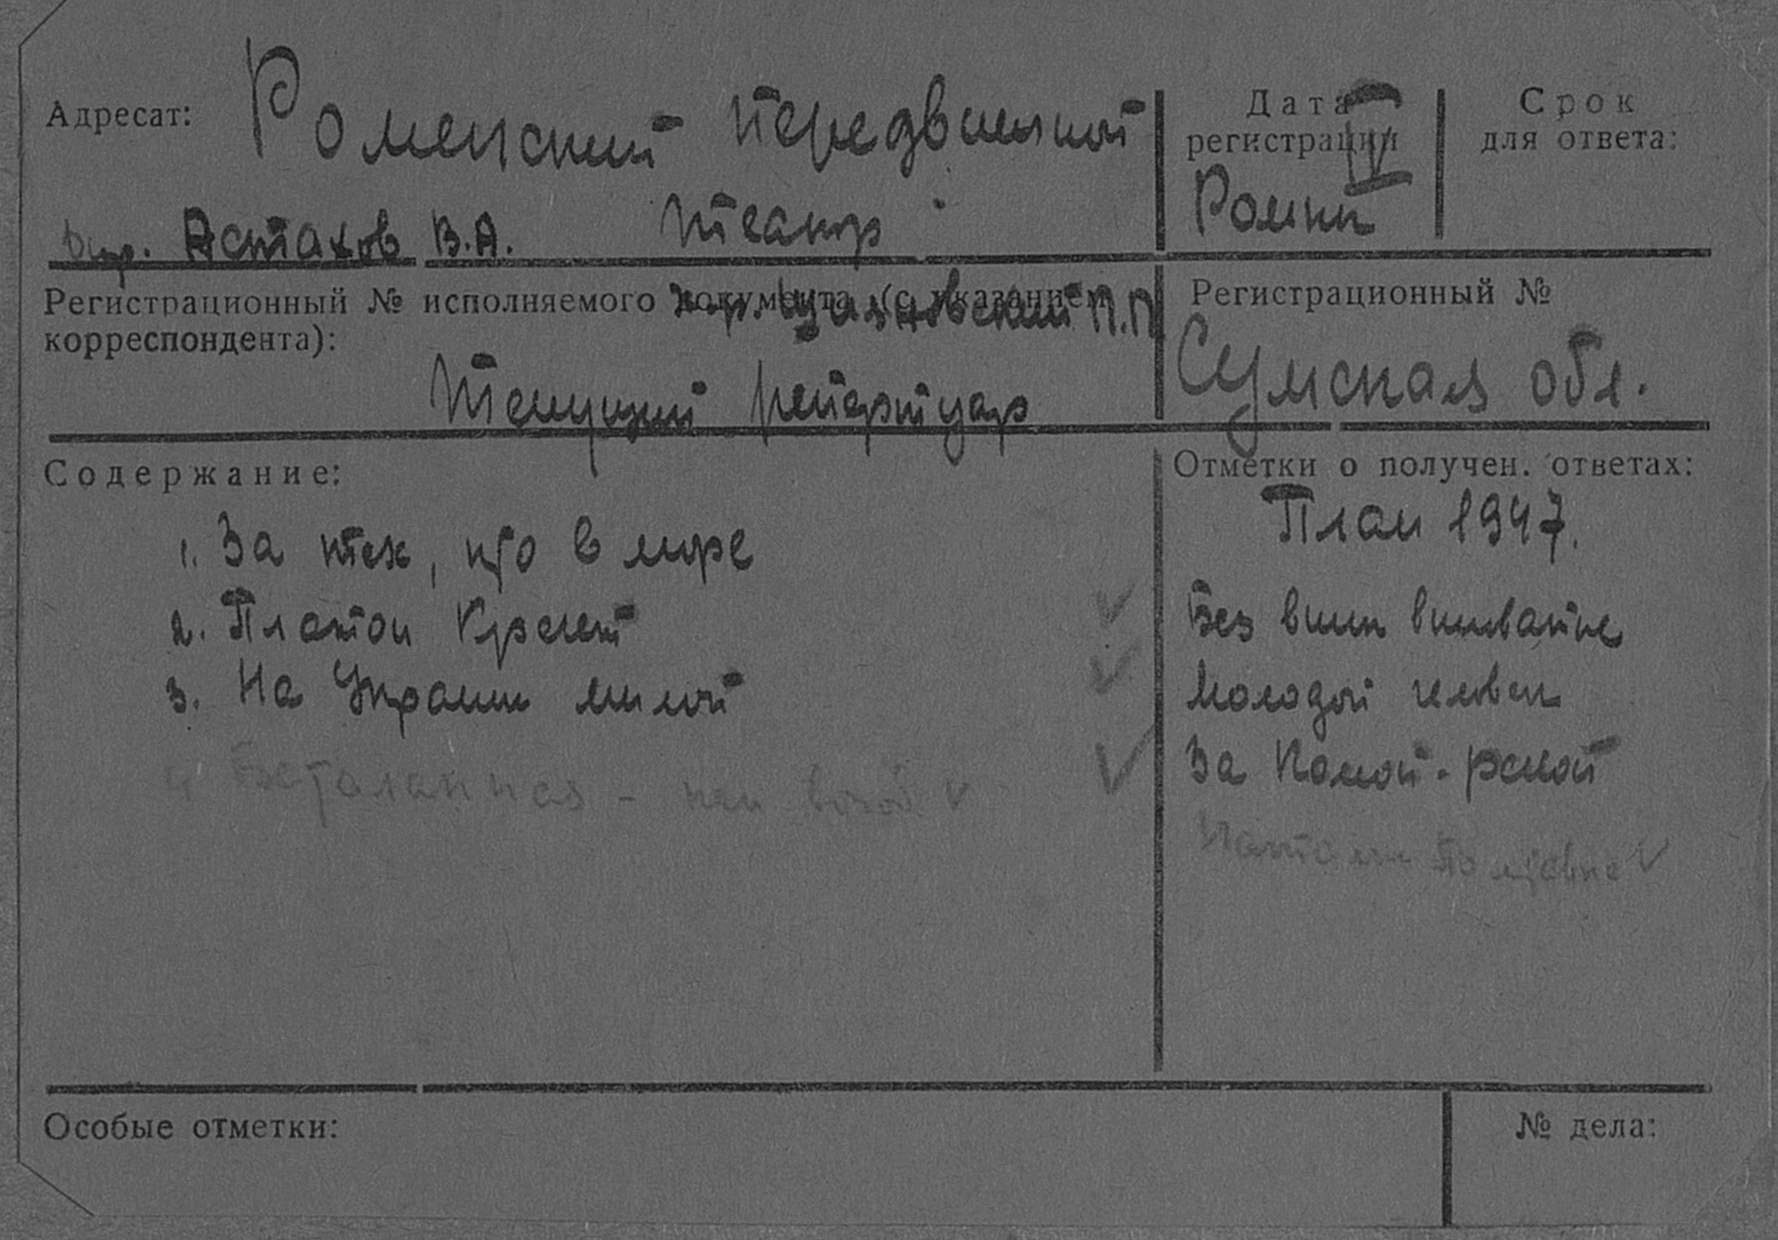 Адресат: Роменский передвижной
театр
дир. Астахов В.А.
Дата регистрации
IV
Ромны
Срок для ответа:
Регистрационный № исполняемого документа (с указанием
корреспондента):
П.П
Текущий репертуар
Регистрационный №
Сумская обл.
Содержание:
1. За тех, кто в море
2. Платон Кречет
3. На Украине милой
4 Бесталанная –
Отметки о получен. ответах:
План 1947.
Без вины виноватые
Молодой человек
За Камой-рекой
Наталка Полтавка
Особые отметки:
№ дела: